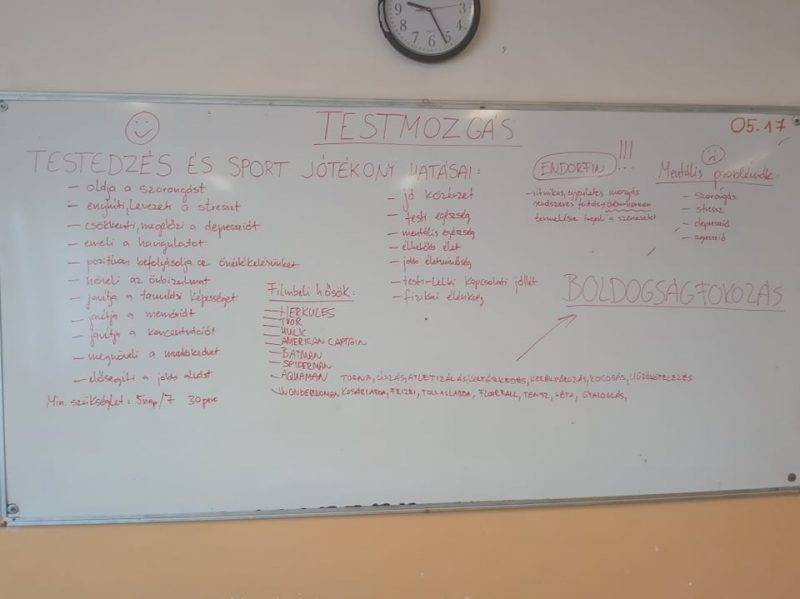 9 3
8 4
7 6 5
TESTMOZGÁS
05.17
TESTEDZÉS ÉS SPORT JÓTÉKONY HATÁSAI:
- oldja a szorongást
- enyhíti, levezeti a stresszt
- csökkenti, megelőzi a depressziót
- emeli a hangulatot
- pozitívan befolyásolja az önértékelésünket
- növeli az önbizalmat
- javítja a tanulási képességet
- javítja a memóriát
- javítja a koncentrációt
- megnöveli a munkakedvet
- elősegíti a jobb alvást
Min. szükséglet: 5 nap/7 30 perc
- jó közérzet
- testi egészség
- mentális egészség
- élhetőbb élet
- jobb életminőség
- testi-lelki kapcsolati jóllét
- fizikai élénkség
ENDORFIN !!!
- ritmikus, egyenletes mozgás
rendszeres futólag
termelésre ingerli a szervezetet
Mentális problémák:
- szorongás
- stressz
- depresszió
- agresszió
BOLDOGSÁGFOKOZÁS
Filmbeli hősök:
- HERKULES
- THOR
- HULK
- AMERICAN CAPTAIN
- BATMAN
- SPIDERMAN
- AQUAMAN
- WONDERWOMAN
TORNA, ÚSZÁS, ATLETIZÁLÁS, KERTÉSZKEDÉS, KERÉKPÁROZÁS, KOCOGÁS,
KOSÁRLABDA, FRIZBI, TOLLASLABDA, FLOORBALL, TENISZ, SÉTA, GYALOGLÁS,